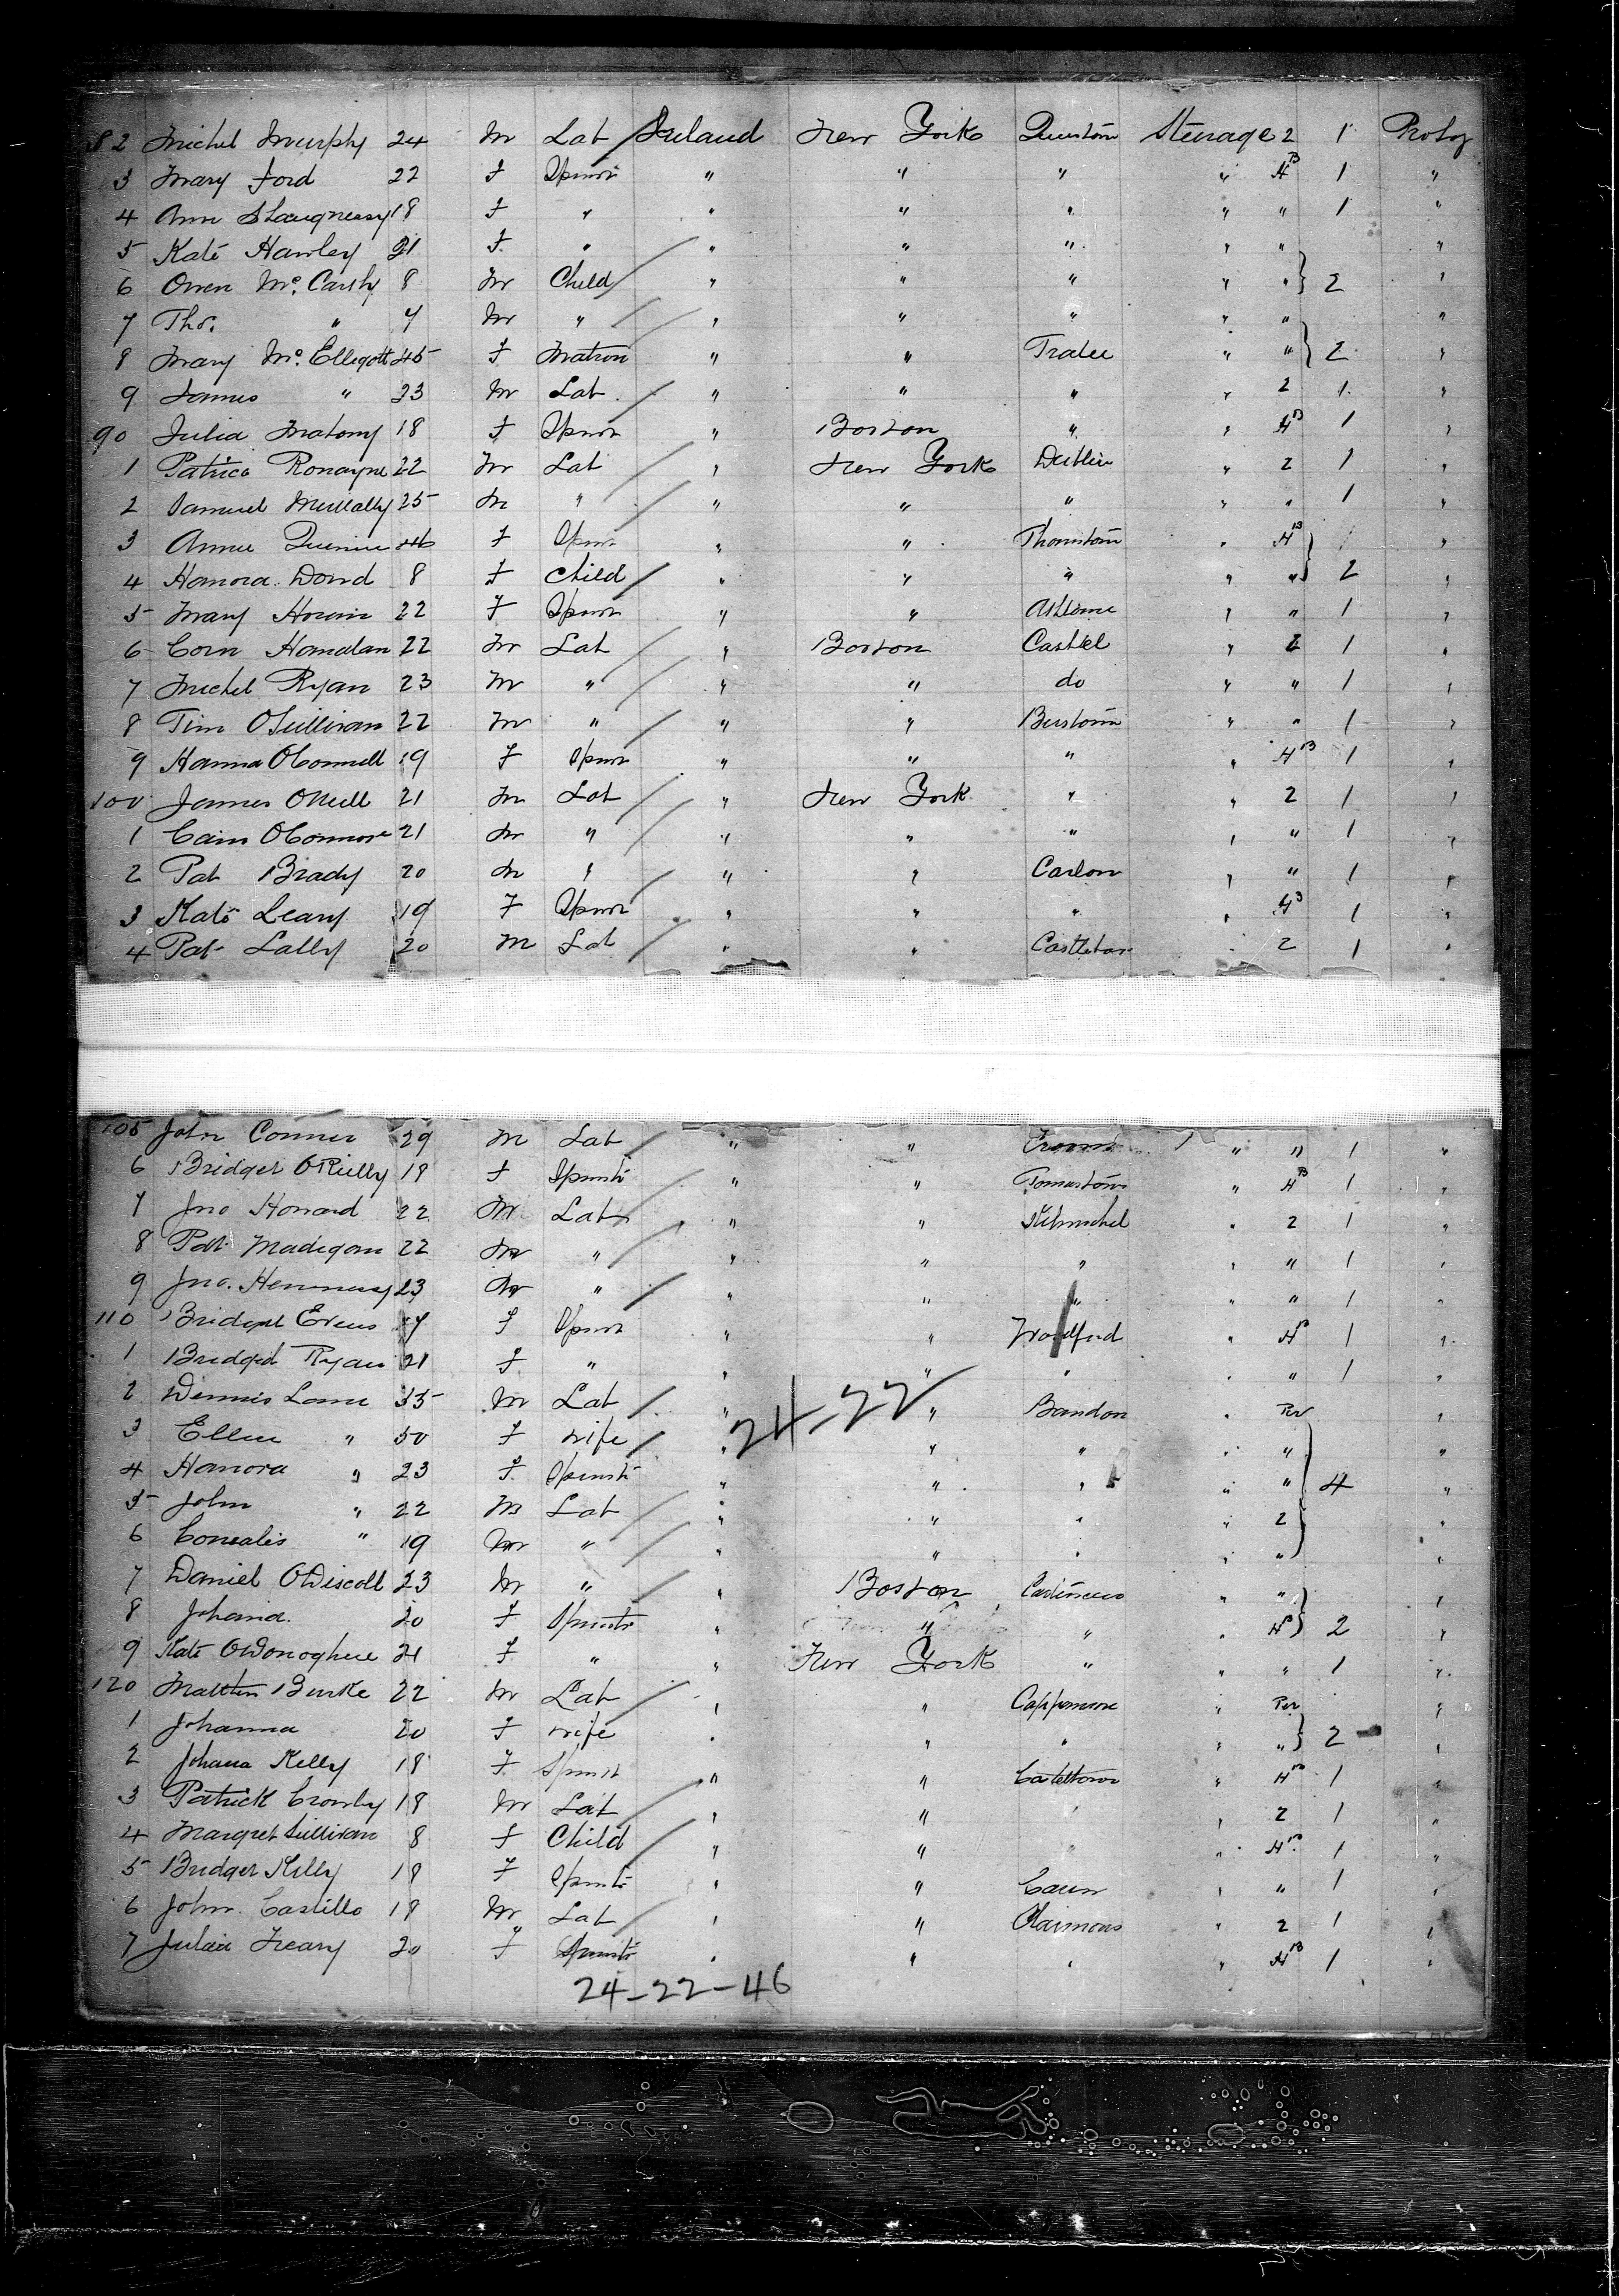 82 Michel Murphy 24 M Lab Ireland New York Queustown Steurage 2 1 Prolog
3 Mary Ford 22 F Spinr " " " " HB 1 "
4 Ann Shaugnessy 18 F " " " " " " 1 "
5 Kate Hanley 21 F " " " " " " "
6 Owen Mc. Carthy 8 M Child " " " " " 2 "
7 Thos. " 7 M " " " " " " "
8 Mary Mc. Elligott 45 F Matron " " Tralee " " 2 "
9 James " 23 M Lab " " " " 2 1 "
90 Julia Matony 18 F Spinr " Boston " " HB 1 "
1 Patrick Ronayne 22 M Lab " New York Dublin " 2 1 "
2 Samuel Mullally 25 M " " " " " " 1 "
3 Annie 46 F Spinr " " Thomstown " HB "
4 Hanora Dowd 8 F Child " " " " " 2 "
5 Mary 22 F Spinr " " Athlone " " 1 "
6 Corn Hanalan 22 M Lab " Boston Cashel " 2 1 "
7 Michel Ryan 23 M " " " do " " 1 "
8 Tim OSullivan 22 M " " " " " 1 "
9 Hanna OConnell 19 F Spinr " " " " HB 1 "
100 James ONeill 21 M Lab " New York " " 2 1 "
1 OConnor 21 M " " " " " " 1 "
2 Pat Brady 20 M " " " Carlow " " 1 "
3 Kate Leary 19 F Spinr " " " " HB 1 "
4 Pat Lally 20 M Lab " " Castlebar " 2 1 "
105 John Conner 29 M Lab " " " " 1 "
6 Bridget OReilly 19 F Spinstr " " Tomastown " HB 1 "
7 Jno Honard 22 M Lab " " " 2 1 "
8 Pat Madigan 22 M " " " " " " 1 "
9 Jno. Hennessy 23 M " " " " " " 1 "
110 Bridget Evens 17 F Spinr " " Woodford " HB 1 "
1 Bridget Ryan 21 F " " " " " " 1 "
2 Dennis Lane 55 M Lab " 24-22 " Bandon " "
3 Ellen " 50 F wife " " " " " "
4 Hanora " 23 F Spinstr " " " " " 4 "
5 John " 22 M Lab " " " " 2 "
6 Cornealis " 19 M " " " " " " "
7 Daniel ODiscoll 23 M " " Boston " " "
8 Johana. 20 F Spinstr " " " " HB 2 "
9 Kate ODonoghue 21 F " " New York " " " 1 "
120 Matthew Burke 22 M Lab " " Cappamore " "
1 Johanna 20 F wife " " " " " 2 "
2 Johana Kelly 18 F Spinst " " Casteltown " HB 1 "
3 Patrick Crowley 18 M Lab " " " " 2 1 "
4 Margret Sullivan 8 F Child " " " " HB 1 "
5 Bridget Killy 18 F Spinstr " " " " 1 "
6 John Castillo 18 M Lab " " " 2 1 "
7 Julia 20 F Spinstr " " " " HB 1 "
24-22-46